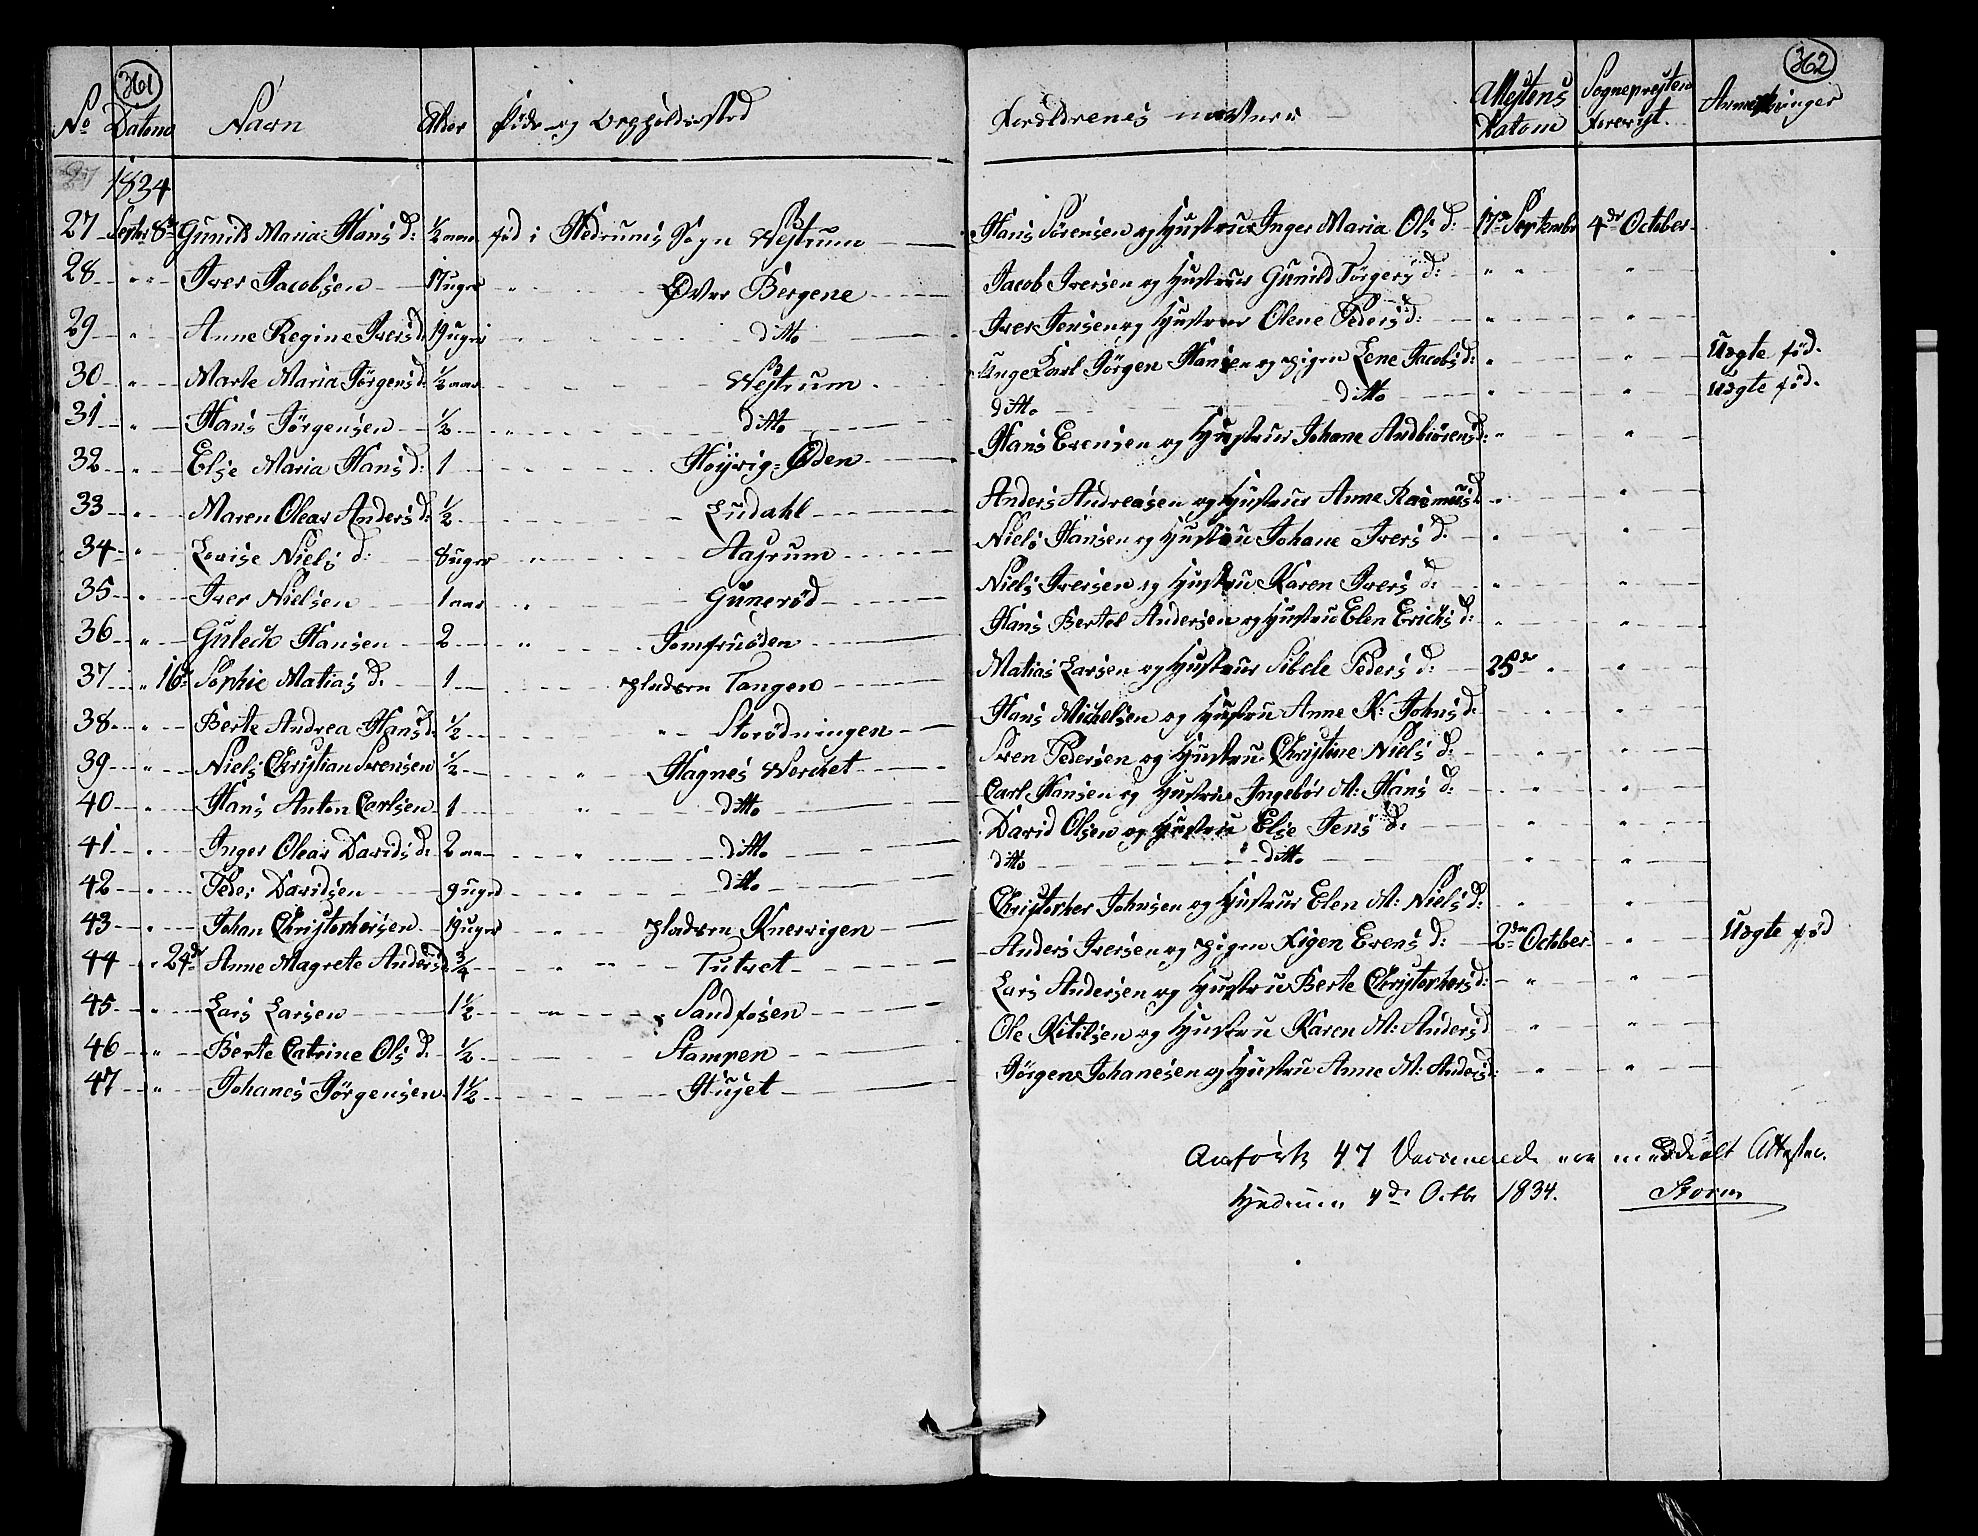 361
362
No Datono Navn Alder Føde og Oppholdssted Forældrenes navne Attestens Datom Sogneprestens forevist. Anmerkninger
1834
27 Septbr 8de Gunild Maria Hans d: ½ aar fød i Hedrums Sogn Westrum Hans Sørensen og Hustrue Inger Maria Ols d: 17de September 4de October
28 " " Iver Jacobsen 17 uger " Øvre Bergene Jacob Iversen og Hustrue Gunild Jørgens d: " " "
29 " Anne Regine Ivers d: 19 uger " ditto Iver Jensen og Hustrue Olene Peders d: " "
30 " Marte Maria Jørgens d: ½ aar Westrum Unge Karl Jørgen Hansen og pigen Lene Jacobs d: " " Uægte fød.
31 " Hans Jørgensen ½ " ditto ditto ditto " " Uægte fød.
32 " Else Maria Hans d: 1 Høyrig=Øden Hans Evensen og Hustrue Johane Andbiørens d: " "
33 " Maren Olear Anders d: ½ Ludahl Anders Andreasen og Hustrue Anne Rasmus d " "
34 " Lovise Niels d: 8 uger " Aasrum Niels Hansen og Hustru Johane Ivers d: " "
35 " Iver Nielsen 1 aar " Gunerød Niels Iversen og Hustru Karen Ivers d: " "
36 " Guleck Hansen 2 " Jomfruøden Hans Bertel Andersen og Hustru Elen Erichs d: " "
37 " 16de Sophie Matias d: 1 pladsen Tangen Matias Larsen og Hustrue Sibele Peders d: 25de " "
38 " Berte Andrea Hans d: ½ " Storødningen Hans Michelsen og Hustru Anne K: Johns d: " "
39 " Niels Christian Svensen ½ " Hagnes Werchet Sven Pedersen og Hustru Christine Niels d: " "
40 " Hans Anton Carlsen 1 " ditto Carl Hansen og Hustrue Ingebør M: Hans d: " "
41 " Inger Olear Davids d: 2 aar " ditto David Olsen og Hustru Else Jens d: " "
42 " Peder Davidsen 9 uger " ditto ditto " ditto " "
43 " Johan Christophersen 19 uger " pladsen Knerrigen Christopher Johnsen og Hustrue Elen M: Niels d: " "
44 " 24de Anne Magrete Anders d: ¾ " " Tutvet Anders Iversen og pigen Sigen Evens d: 2den October " Uægte fød
45 " Lars Larsen 1½ " Sandfosen Lars Andersen og Hustru Berte Christophers d: " "
46 " Berte Catrine Ols d: ½ Stampen Ole Kitilsen og Hustru Karen M: Anders d " "
47 " Johanes Jørgensen 1½ Huset Jørgen Johanesen og Hustru Anne M: Anders d: " "
Anførte 47 Vaccinerede ere meddeelt Attester.
Hedrum 4de Octbr 1834. Storm